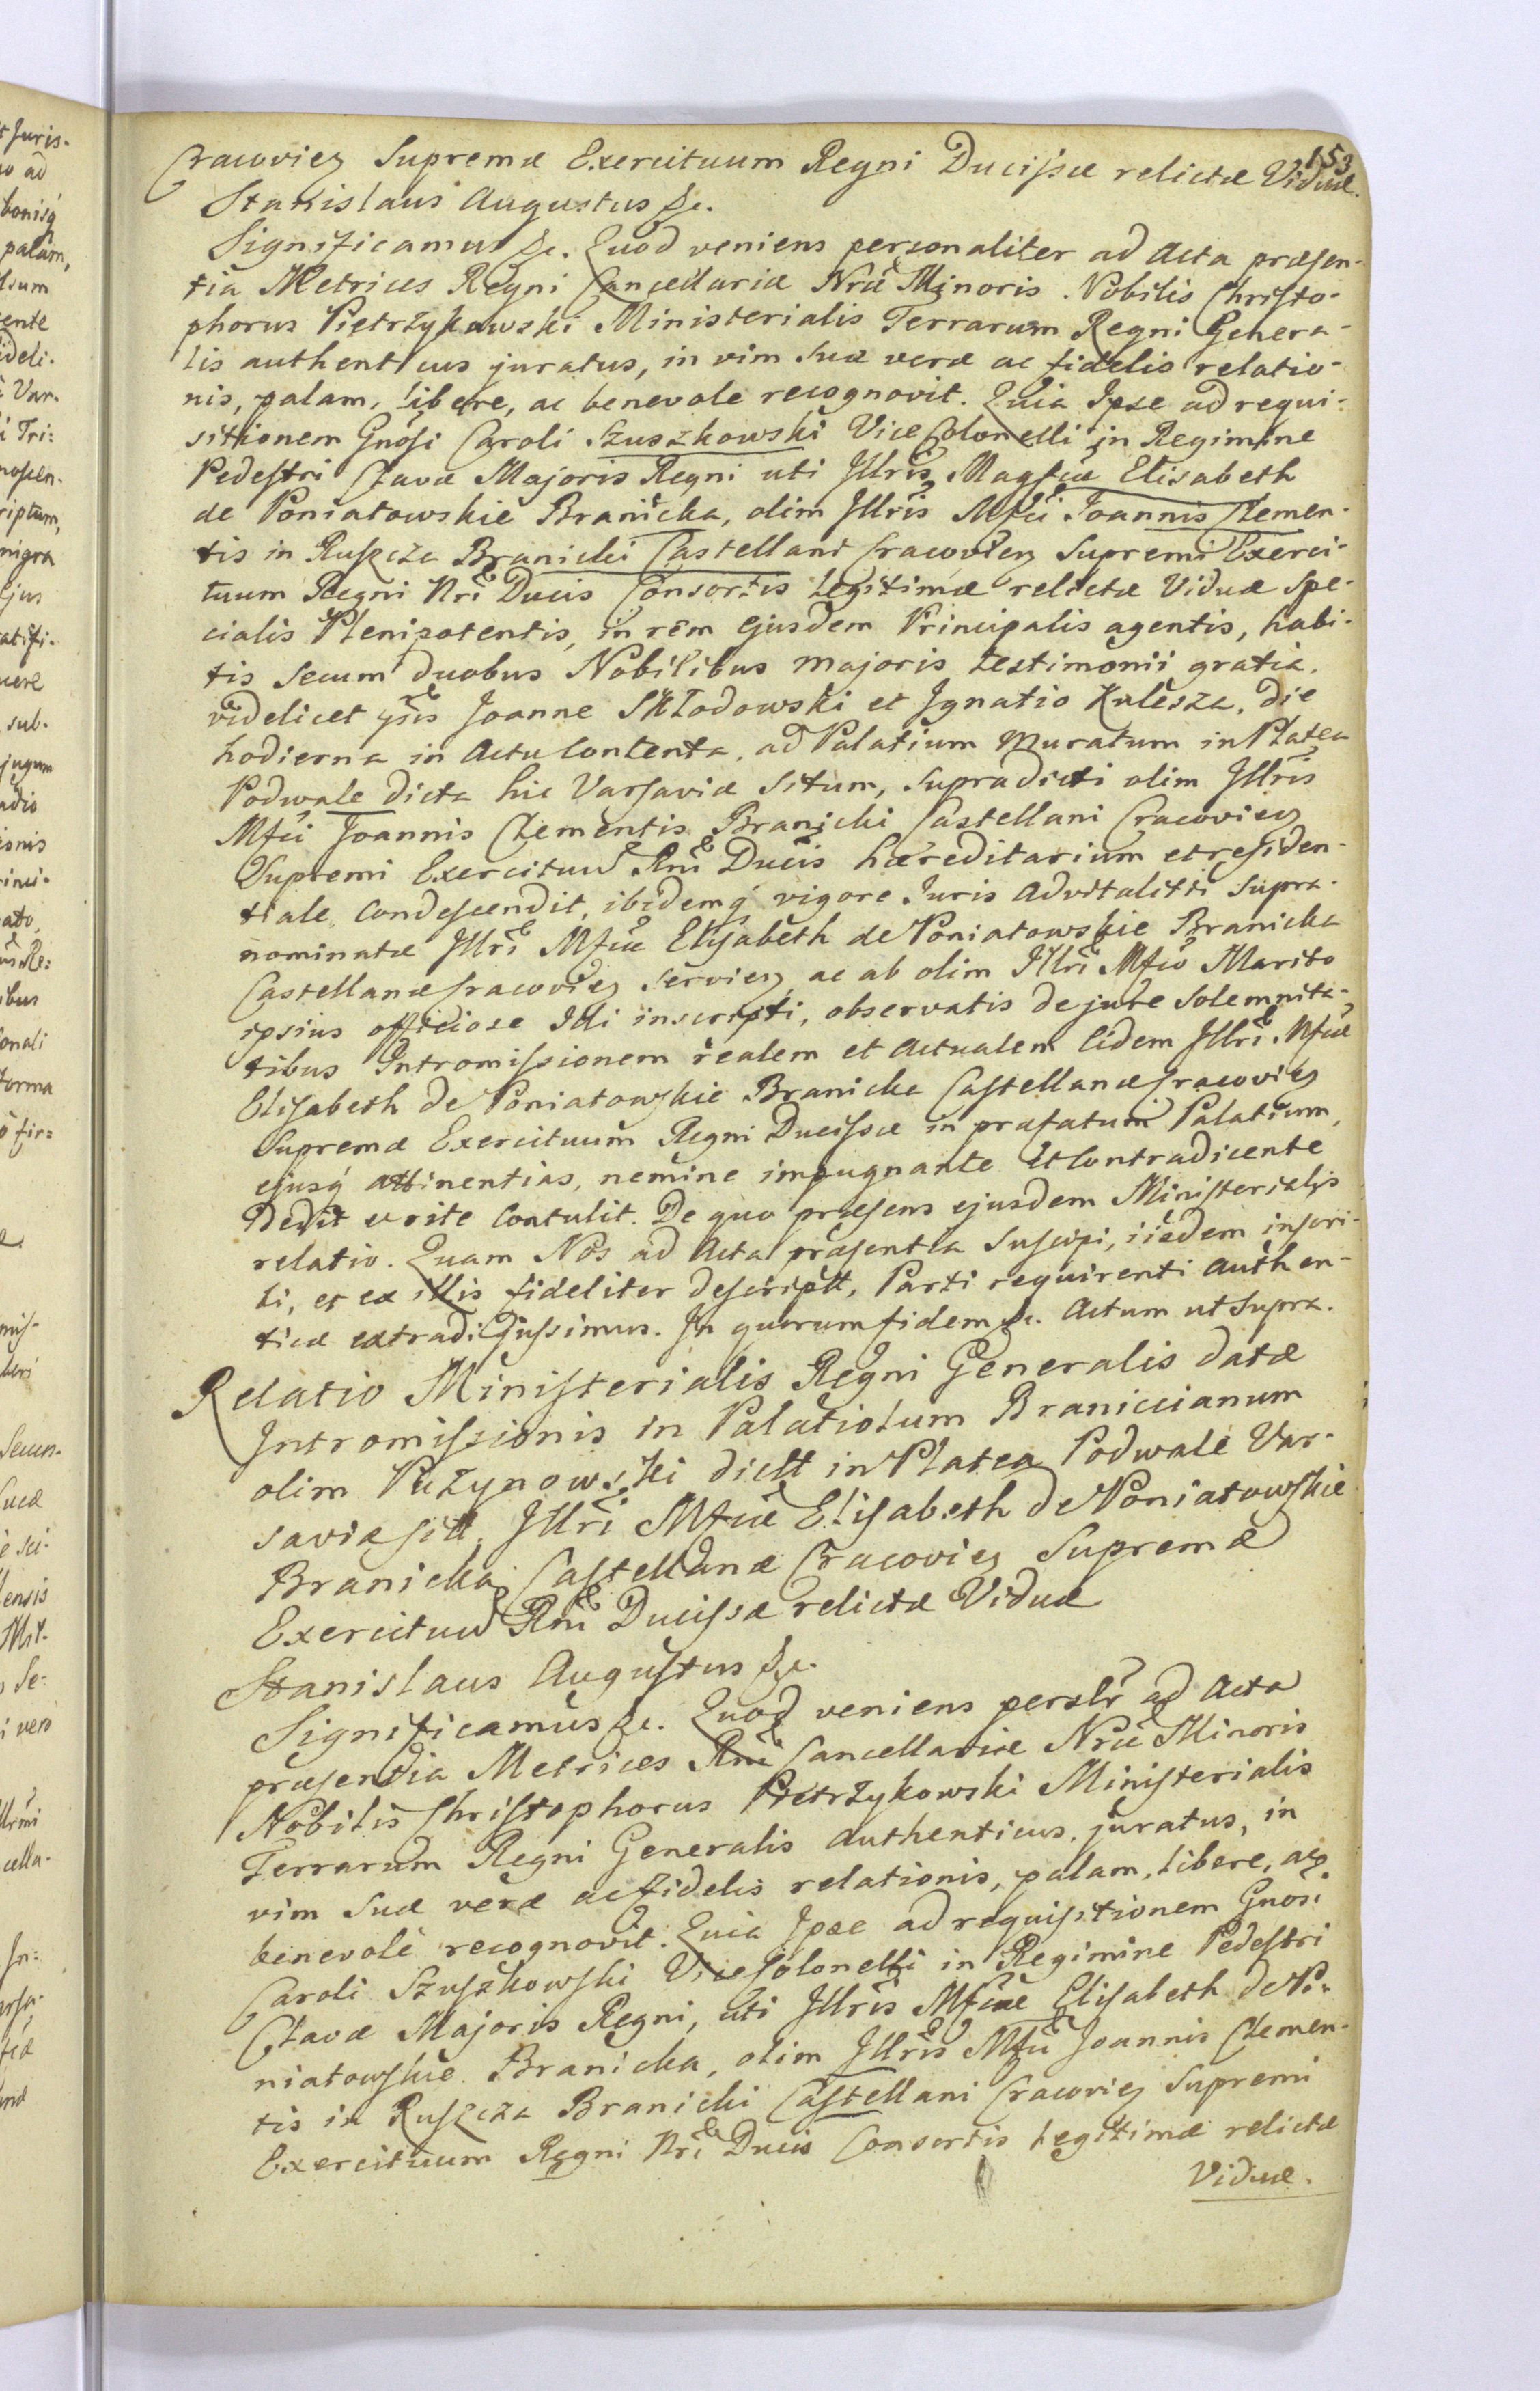 153
Cracovien Supremæ Exercituum Regni Ducissæ relictæ Viduæ.
Stanislaus Augustus &c.
Significamus &c. Quod veniens personaliter ad Acta præsen-
tia Metrices Regni Cancellariæ Nræ Minoris. Nobilis Christo-
phorus Pietrzykowski Ministerialis Terrarum Regni Genera-
lis authenticus juratus, in vim suæ veræ ac fidelis relatio-
nis, palam, libere, ac benevole recognovit. Quia Ipse ad requi-
sitionem Gnosi Caroli Szuszkowski Vice Colonelli in Regimine
Pedestri Clavæ Majoris Regni uti Illris Magfcæ Elisabeth
de Poniatowskie Branicka, olim Illris Mfci Joannis Clemen-
tis in Ruszcza Branicki Castellani Cracovien Supremi Exerci-
tuum Regni Nri Ducis Consortis legitimæ relictæ Viduæ Spe-
cialis Plenipotentis, in rem ejusdem Principalis agentis, habi-
tis secum duobus Nobilibus majoris testimonii gratia,
videlicet gsis Joanne Skłodowski et Ignatio Kulesza, die
hodierna in Actu Contenta, ad Palatium muratum in Platea
Podwale dicta hic Varsaviæ situm, supradicti olim Illris
Mfci Joannis Clementis Branicki Castellani Cracovien
Supremi Exercituu Rni Ducis hæreditarium et residen-
tiale, condescendit, ibidemq vigore Juris Advitalitii supra-
nominatæ Illri Mfcæ Elisabeth de Poniatowskie Branicka
Castellanæ Cracovien servien, ac ab olim Illri Mfco Marito
ipsius officiose Illi inscripti, observatis de jure solemnita-
tibus Intromissionem realem et actualem Eidem Illri Mfcæ
Elisabeth de Poniatowskie Branicka Castellanæ Cracovien
Supremæ Exercituum Regni Ducissæ in præfatum Palatium,
ejusq attinentias, nemine impugnante et Contradicente
dedit ac rite Contulit. De quo præsens ejusdem Ministerialis
relatio. Quam Nos ad Acta præsentia Suscipi, iisdem inscri-
bi, et ex illis fideliter descriptt, Parti requirenti authen-
tice extradi Jussimus. In quorum fidem &c. Actum ut Supra.
Relatio Ministerialis Regni Generalis datæ
Intromissionis in Palatiolum Braniccianum
olim Puzynowski dictt in Platea Podwale Var-
saviæ sitt, Illri Mfcæ Elisabeth de Poniatowskie
Branicka Castellanæ Cracovien Supremæ
Exercituu Rni Ducissæ relictæ Viduæ
Stanislaus Augustus &c.
Significamus &c. Quod veniens persler ad Acta
præsentia Metrices Rni Cancellariæ Nræ Minoris
Nobilis Christophorus Pietrzykowski Ministerialis
Terrarum Regni Generalis authenticus, juratus, in
vim suæ veræ ac fidelis relationis, palam, libere, acq
benevole recognovit. Quia Ipse ad requisitionem Gnosi
Caroli Szuszkowski Vice Colonelli in Regimine Pedestri
Clavæ Majoris Regni, uti Illris Mfcæ Elisabeth de Po-
niatowskie Branicka, olim Illris Mfci Joannis Clemen-
tis in Ruszcza Branicki Castellani Cracovien Supremi
Exercituum Regni Nri Ducis Consortis legitimæ relictæ
Viduæ.